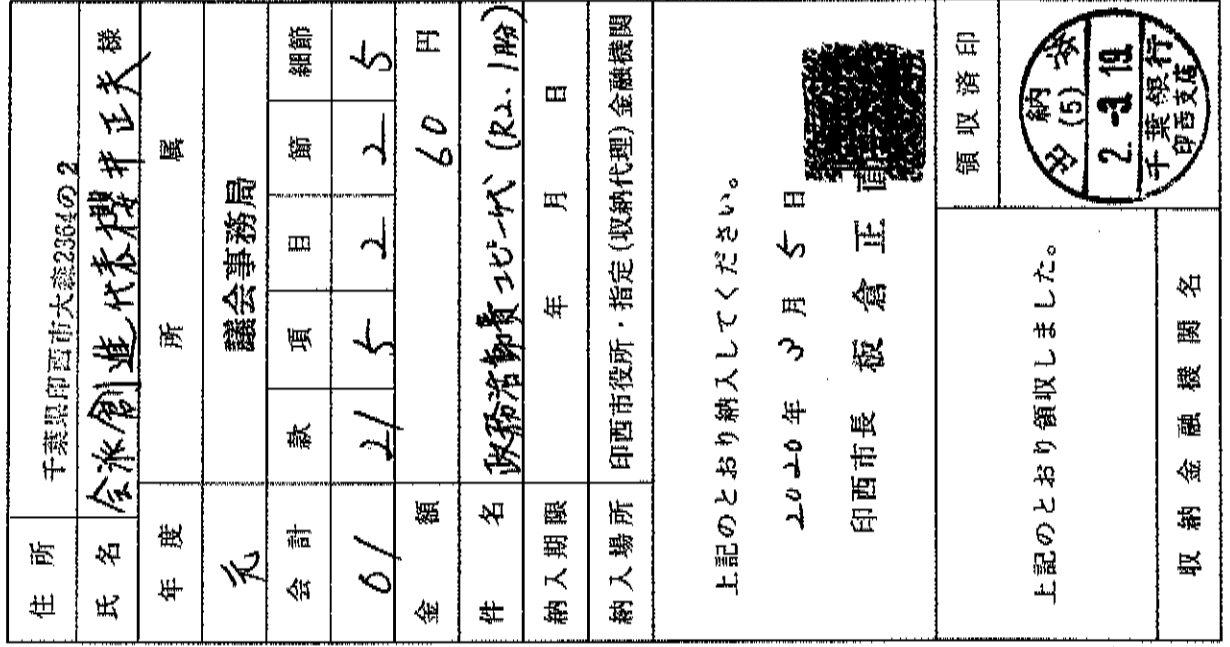 住所 千葉県印西市大森2364の2
氏名 会派創進代表櫻井正夫 様
年度 所属
元 議会事務局
会計 款 項 目 節 細節
01 21 5 2 2 5
金額 60 円
件名 政務活動費コピー代 (R2.1月分)
納入期限 年 月 日
納入場所 印西市役所・指定(収納代理)金融機関
上記のとおり納入してください。
2020年 3月 5日
印西市長 板倉正直
領収済印
上記のとおり領収しました。
出納
(5)
2.-3.19
千葉銀行
印西支店
収納金融機関名